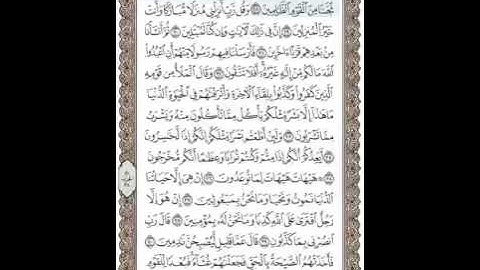 نَجَّىٰنَا مِنَ ٱلْقَوْمِ ٱلظَّٰلِمِينَ ٢٨ وَقُل رَّبِّ أَنزِلْنِي مُنزَلًا مُّبَارَكًا وَأَنتَ
خَيْرُ ٱلْمُنزِلِينَ ٢٩ إِنَّ فِي ذَٰلِكَ لَءَايَٰتٍ وَإِن كُنَّا لَمُبْتَلِينَ ٣٠ ثُمَّ أَنشَأْنَا
مِنۢ بَعْدِهِمْ قَرْنًا ءَاخَرِينَ ٣١ فَأَرْسَلْنَا فِيهِمْ رَسُولًا مِّنْهُمْ أَنِ ٱعْبُدُوا۟
ٱللَّهَ مَا لَكُم مِّنْ إِلَٰهٍ غَيْرُهُۥٓ أَفَلَا تَتَّقُونَ ٣٢ وَقَالَ ٱلْمَلَأُ مِن قَوْمِهِ
ٱلَّذِينَ كَفَرُوا۟ وَكَذَّبُوا۟ بِلِقَآءِ ٱلْءَاخِرَةِ وَأَتْرَفْنَٰهُمْ فِي ٱلْحَيَوٰةِ ٱلدُّنْيَا
مَا هَٰذَآ إِلَّا بَشَرٌ مِّثْلُكُمْ يَأْكُلُ مِمَّا تَأْكُلُونَ مِنْهُ وَيَشْرَبُ
مِمَّا تَشْرَبُونَ ٣٣ وَلَئِنْ أَطَعْتُم بَشَرًا مِّثْلَكُمْ إِنَّكُمْ إِذًا لَّخَٰسِرُونَ
٣٤ أَيَعِدُكُمْ أَنَّكُمْ إِذَا مِتُّمْ وَكُنتُمْ تُرَابًا وَعِظَٰمًا أَنَّكُم مُّخْرَجُونَ
٣٥ هَيْهَاتَ هَيْهَاتَ لِمَا تُوعَدُونَ ٣٦ إِنْ هِيَ إِلَّا حَيَاتُنَا
ٱلدُّنْيَا نَمُوتُ وَنَحْيَا وَمَا نَحْنُ بِمَبْعُوثِينَ ٣٧ إِنْ هُوَ إِلَّا
رَجُلٌ ٱفْتَرَىٰ عَلَى ٱللَّهِ كَذِبًا وَمَا نَحْنُ لَهُۥ بِمُؤْمِنِينَ ٣٨ قَالَ رَبِّ
ٱنصُرْنِي بِمَا كَذَّبُونِ ٣٩ قَالَ عَمَّا قَلِيلٍ لَّيُصْبِحُنَّ نَٰدِمِينَ ٤٠
فَأَخَذَتْهُمُ ٱلصَّيْحَةُ بِٱلْحَقِّ فَجَعَلْنَٰهُمْ غُثَآءً فَبُعْدًا لِّلْقَوْمِ